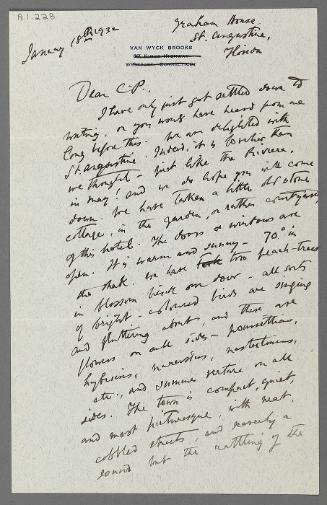 A.1.228
January 18th 1932
Graham House,
St. Augustine,
Florida
VAN WYCK BROOKS
Dear C-P.,
I have only just got settled down to
writing, or you would have heard from me
long before this. We are delighted with
St. Augustine. Indeed, it is lovelier than
we thought - just like the Riviera,
in may! and we do hope you will come
down. We have taken a little old stone
cottage, in the garden, or rather courtyard,
of this hotel. The doors & windows are
open. It is warm and sunny - 70° in
the shade. We have two peach-trees
in blossom beside our door - all sorts
of bright-coloured birds are singing
and fluttering about, and there are
flowers on all sides - poinsettias,
hibiscus, narcissus, nasturtiums,
etc., and summer verdure on all
sides. The town is compact, quiet,
and most picturesque, with neat,
cobbled streets, and scarcely a
sound but the rattling of the